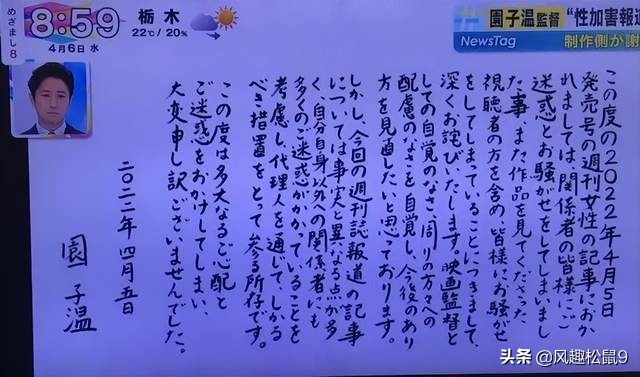 めざまし8
8:59
4月6日 水
栃木
22℃/20%
園子温監督 “性加害報道
NewsTag
制作側が謝
この度の2022年4月5日
発売号の週刊女性の記事におか
れましては、関係者の皆様にご
迷惑とお騒がせをしてしまいまし
た事、また作品を見てくださった
視聴者の方を含め、皆様にお騒がせ
をしてしまっていることにつきまして、
深くお詫びいたします。映画監督と
しての自覚のなさ、周りの方々への
配慮のなさを自覚し、今後のあり
方を見直したいと思っております。
しかし、今回の週刊誌報道の記事
については事実と異なる点が多
く、自分自身以外への関係者にも
多くのご迷惑がかかっていることを
考慮し、代理人を通じて、しかる
べき措置をとって参る所存です。
この度は多大なるご心配と
ご迷惑をおかけしてしまい、
大変申し訳ございませんでした。
二〇二二年四月五日
園子温
头条 @风趣松鼠9